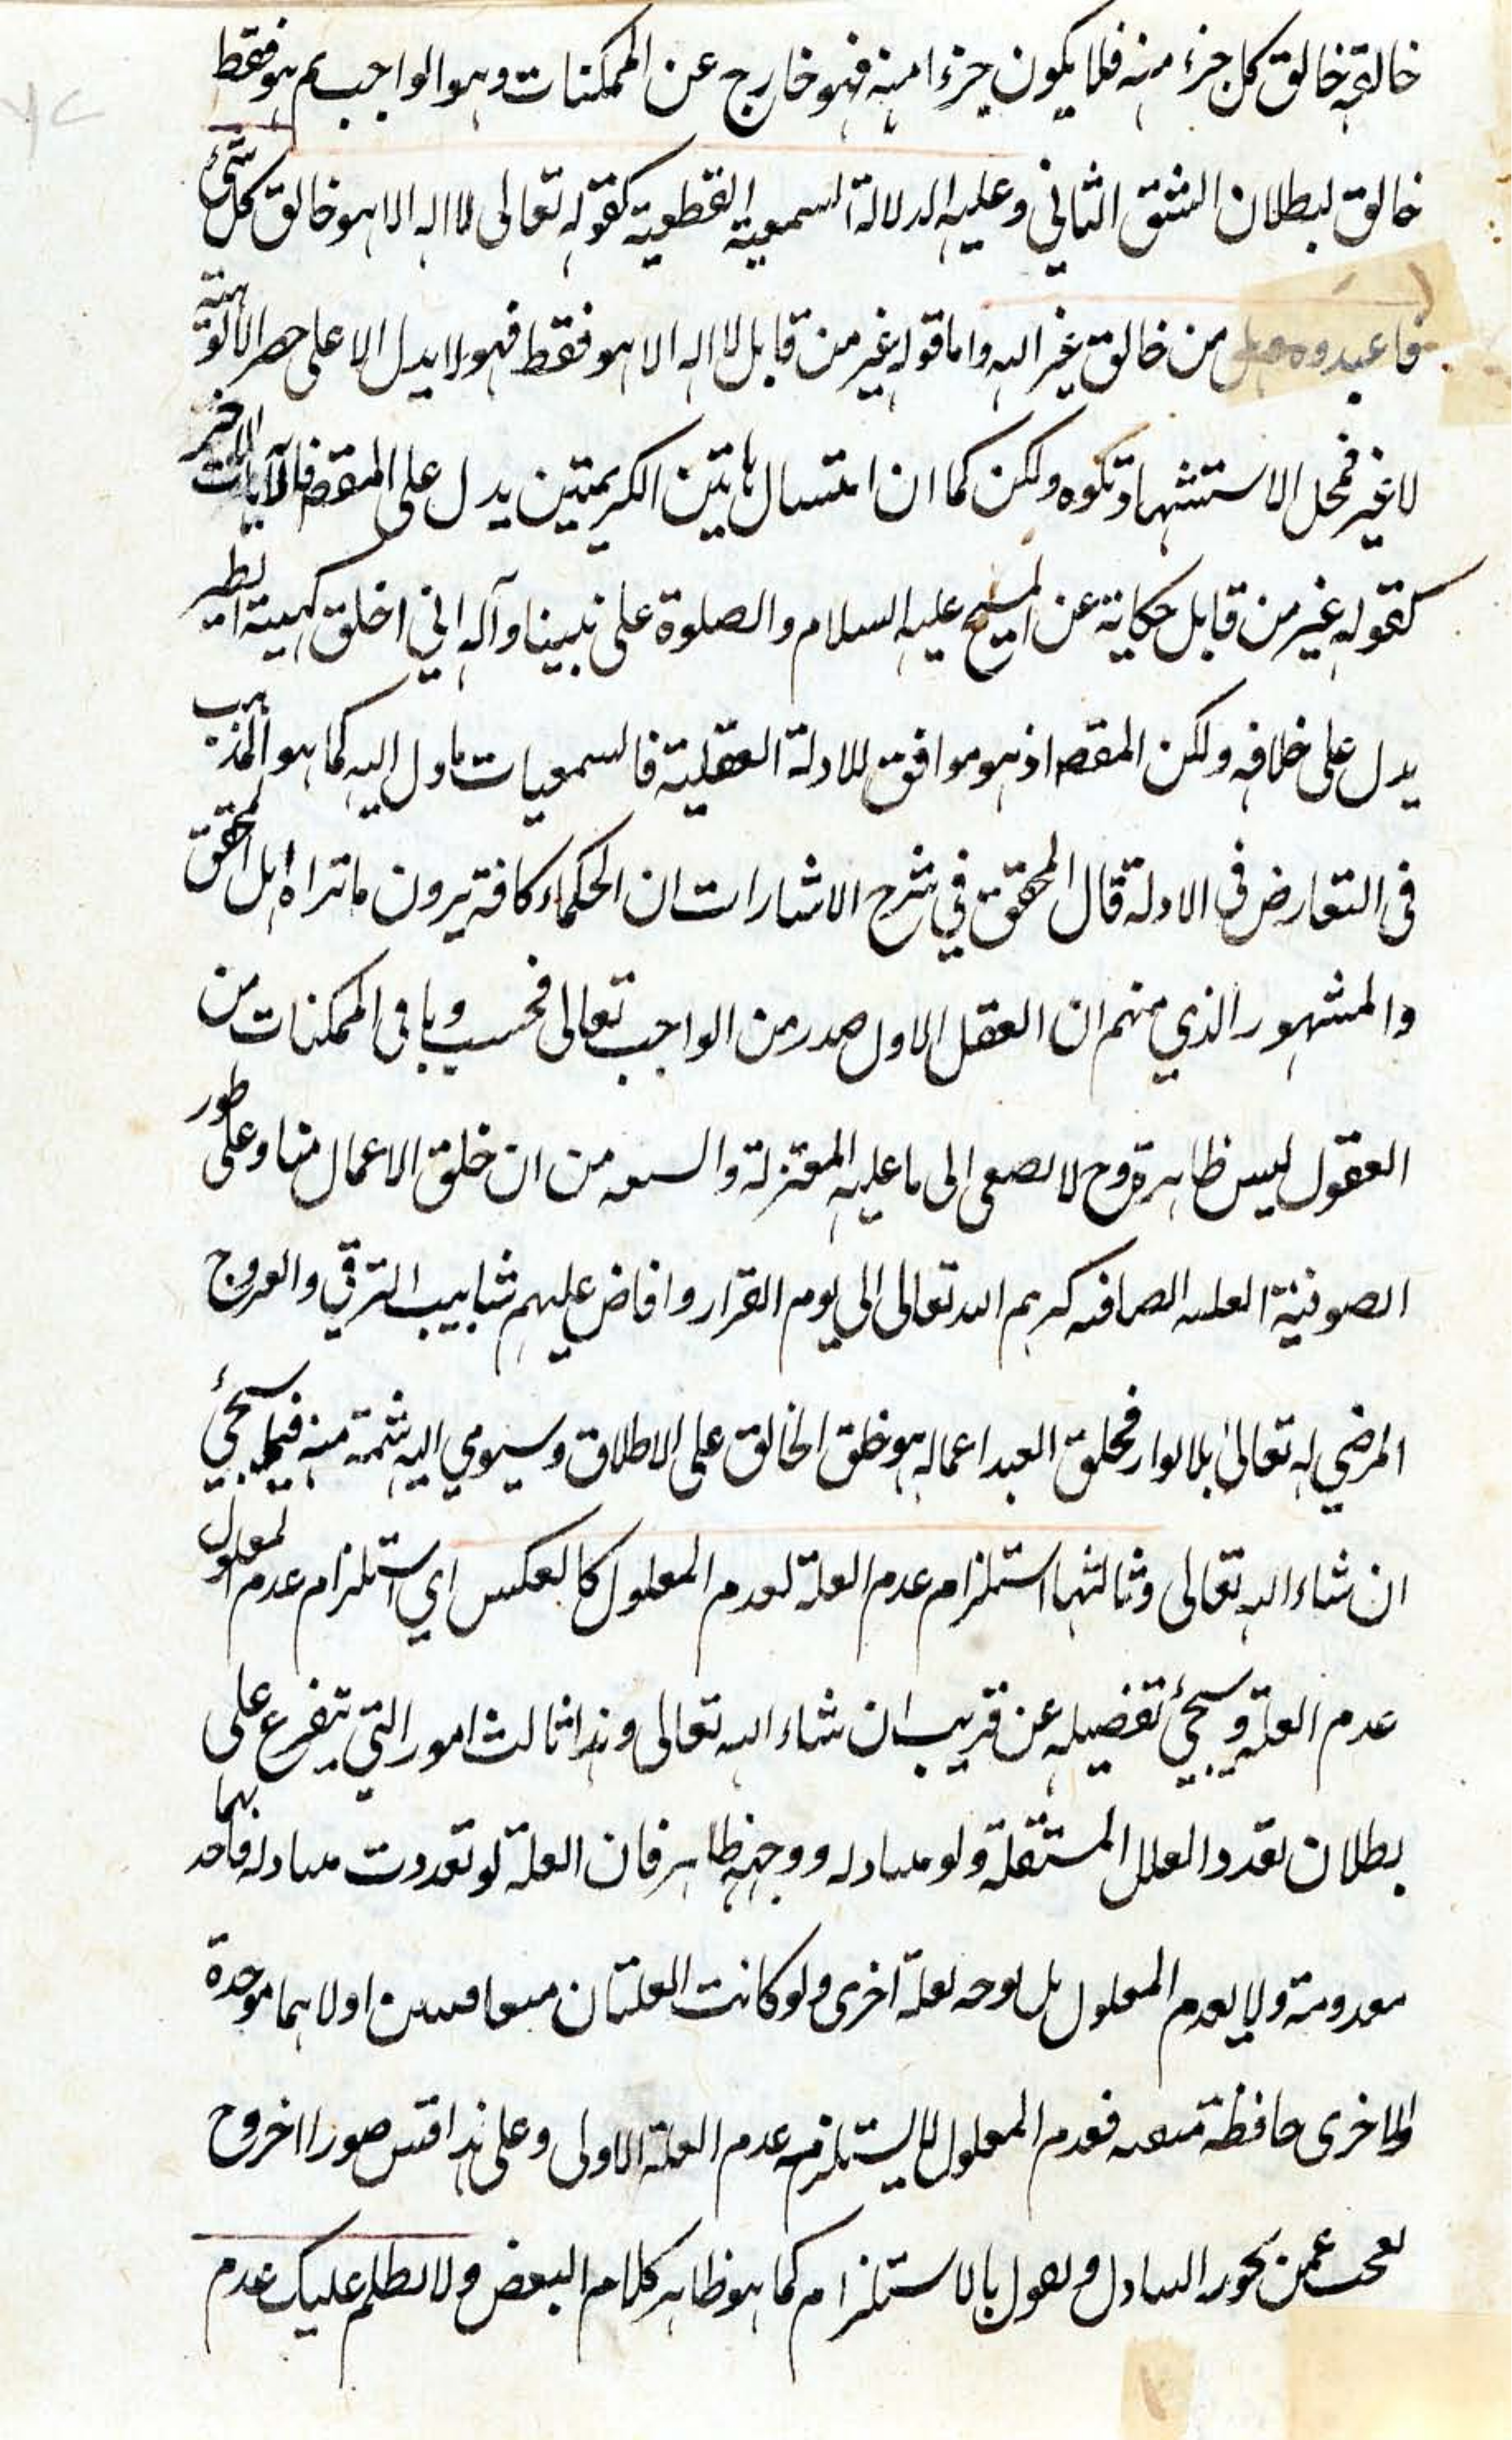 خالقه خالق كل جزء منه فلا يكون جزءا منه فهو خارج عن الممكنات وهو الواجب ثم هو فقط
خالق لبطلان الشق الثاني وعليه الدلالة السمعية القطعية كقوله تعالى لا اله الا هو خالق كل شئ
فاعبدوه وهل من خالق غير الله واما قوله عز من قايل لا اله الا هو فقط فهو لا يدل الا على حصر الالوهية
لا غير فمحل الاستشهاد تكوه ولكن كما ان امتسال هاتين الكريمتين يدل على المقصد فالآيات الاخر
كقوله عز من قايل حكاية عن المسيح عليه السلام والصلوة على نبينا وآله اني اخلق كهيئة الطير
يدل على خلافه ولكن المقصد اذ هو موافق للادلة العقلية فالسمعيات ماول اليه كما هو المذهب
في التعارض في الادلة قال المحقق في شرح الاشارات ان الحكماء كافة يرون ما تراه اهل الحق
والمشهور الذي منهم ان العقل الاول صدر من الواجب تعالى فحسب وباقى الممكنات من
العقول ليس ظاهرة وح لا يصغى الى ما عليه المعتزلة والشيعه من ان خلق الاعمال منا وعلى طور
الصوفية العليه الصافيه كرهم الله تعالى الى يوم القرار وافاض عليهم شابيب الترقي والعروج
المرضي له تعالى بلا بوار فخلق العبد اعماله هو خلق الخالق على الاطلاق وسيومي اليه شمة منه فيما سيجئ
ان شاء الله تعالى وثالثها استلزام عدم العلة لعدم المعلول كالعكس اي استلزام عدم المعلول
عدم العلة وسيجئ تفصيله عن قريب ان شاء الله تعالى وهذا ثالث امور التي يتفرع على
بطلان تعدد العلل المستقلة ولو متبادله ووجهه ظاهر فان العلة لو تعددت متبادله فاحدهما
معدومة ولا يعدم المعلول بل يوجد لعلة اخرى ولو كانت العلتان متعاقبتين اولاهما موجدة
والاخرى حافظة متبعه فعدم المعلول لا يستلزم عدم العلة الاولى وعلى هذا قس صورا اخر وح
تعجب عمن يجوز التبادل ويقول بالاستلزام كما هو ظاهر كلام البعض ولا يظلم عليك عدم